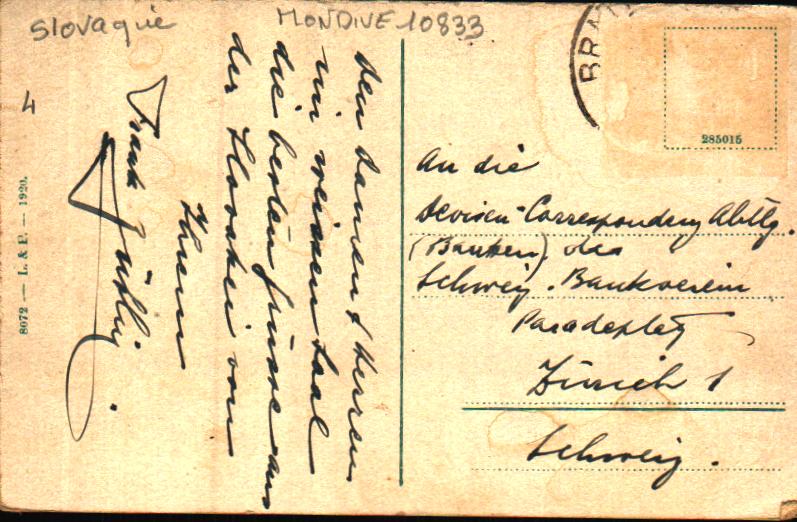 Slovaquie
MONDIVE 10833
4
BRAT
285015
8072 — L. & P. — 1920.
Den Damen & Herren
im weissen Saal
die besten Grüsse aus
der Slovakei von
Ihrem
Frank
An die
Devisen-Correspondenz Abtlg.
(Banken) des
Schweiz. Bankverein
Paradeplatz
Zürich 1
Schweiz.